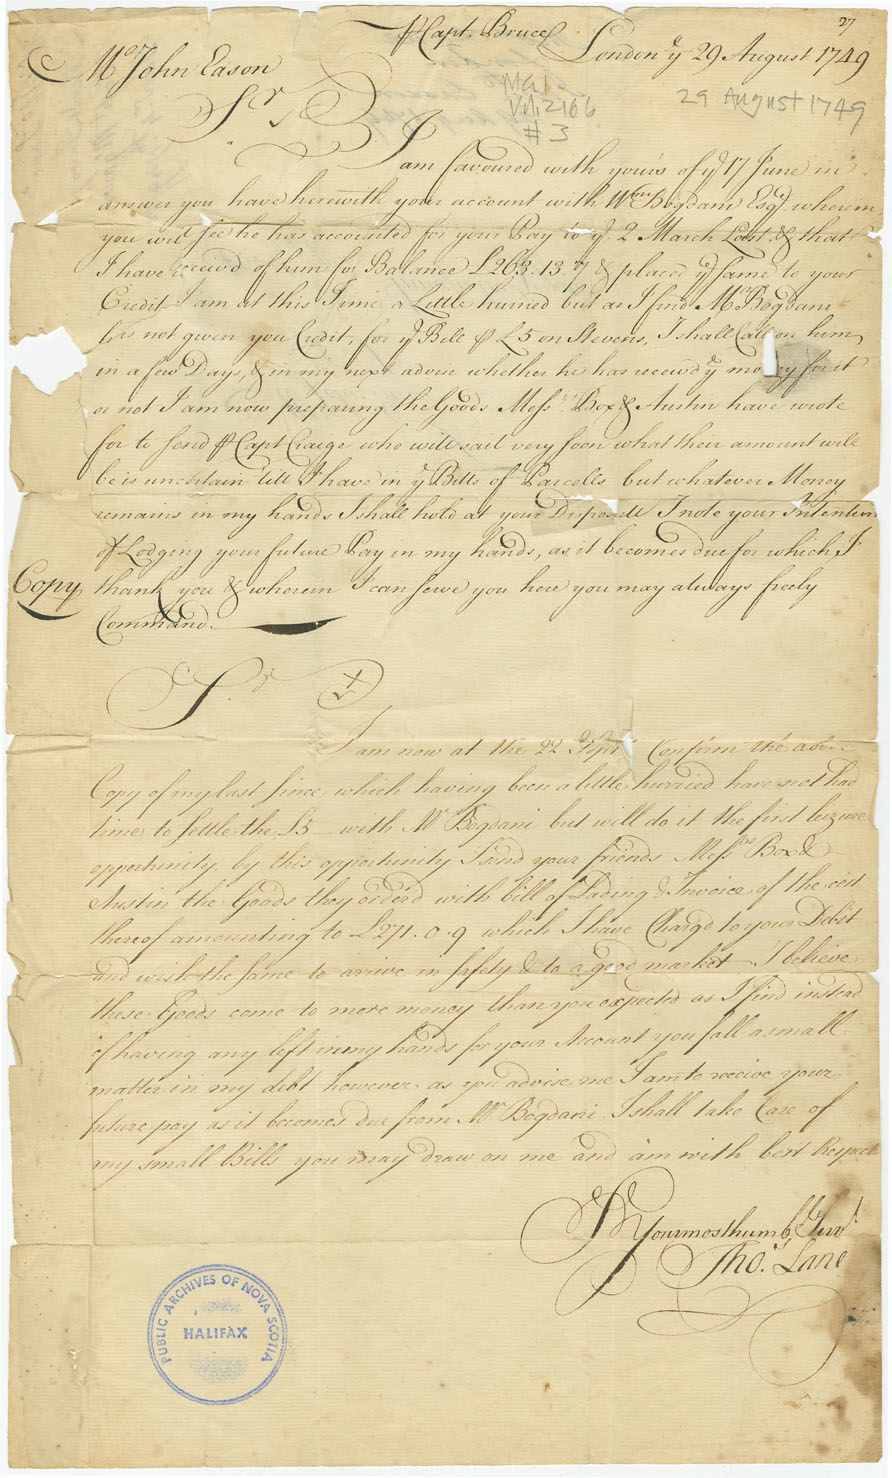 27
⅌ Capt. Bruce
London ye 29 August 1749
Mr John Eason
MG1
Vol. 2166
#3
29 August 1749
Sr
I am favoured with yours of ye 17 June in
answer you have herewith your account with Wm Bogdani Esqr. wherein
you will see he has accounted for your Pay to ye. 2 March Last. & that
I have receivd of him for Balance £263.13.7 & placed ye same to your
Credit I am at this Time a Little hurried but as I find Mr Bogdani
has not given you Credit, for ye Bill ⅌ £5 on Stevens, I shall Call on him
in a few Days, & in my next advise whether he has receivd ye money for it
or not I am now prepairing the Goods Messrs. Box & Austin have wrote
for to send ⅌ Capt Craige who will sail very soon what their amount will
be is uncertain till I have in ye Bills of Parcells but whatever Money
remains in my hands I shall hold at your Disposall I note your Intention
of Lodging your future Pay in my hands, as it becomes due for which I
Copy
thank you & wherein I can serve you here you may always freely
Command.
Sr
I am now at the 22 Sepr Confirm the above
Copy of my last since which having been a little hurried have not had
time to settle the £5 with Mr Bogdani but will do it the first leizure
opportunity by this opportunity I send your friends Messrs Box &
Austin the Goods they order'd with bill of Lading & Invoice of the cost
thereof amounting to £271.0.9 which I have Chargd to your Debit
and wish the same to arrive in safety & to a good market I believe
these Goods come to more money than you expected as I find instead
of having any left in my hands for your Account you fall a small
matter in my debt however as you advise me I am to receive your
future pay as it becomes due from Mr Bogdani I shall take Care of
my small Bills you may draw on me and am with best Respect
Sr
Your most humble Servt
Thos. Lane
PUBLIC ARCHIVES OF NOVA SCOTIA
HALIFAX